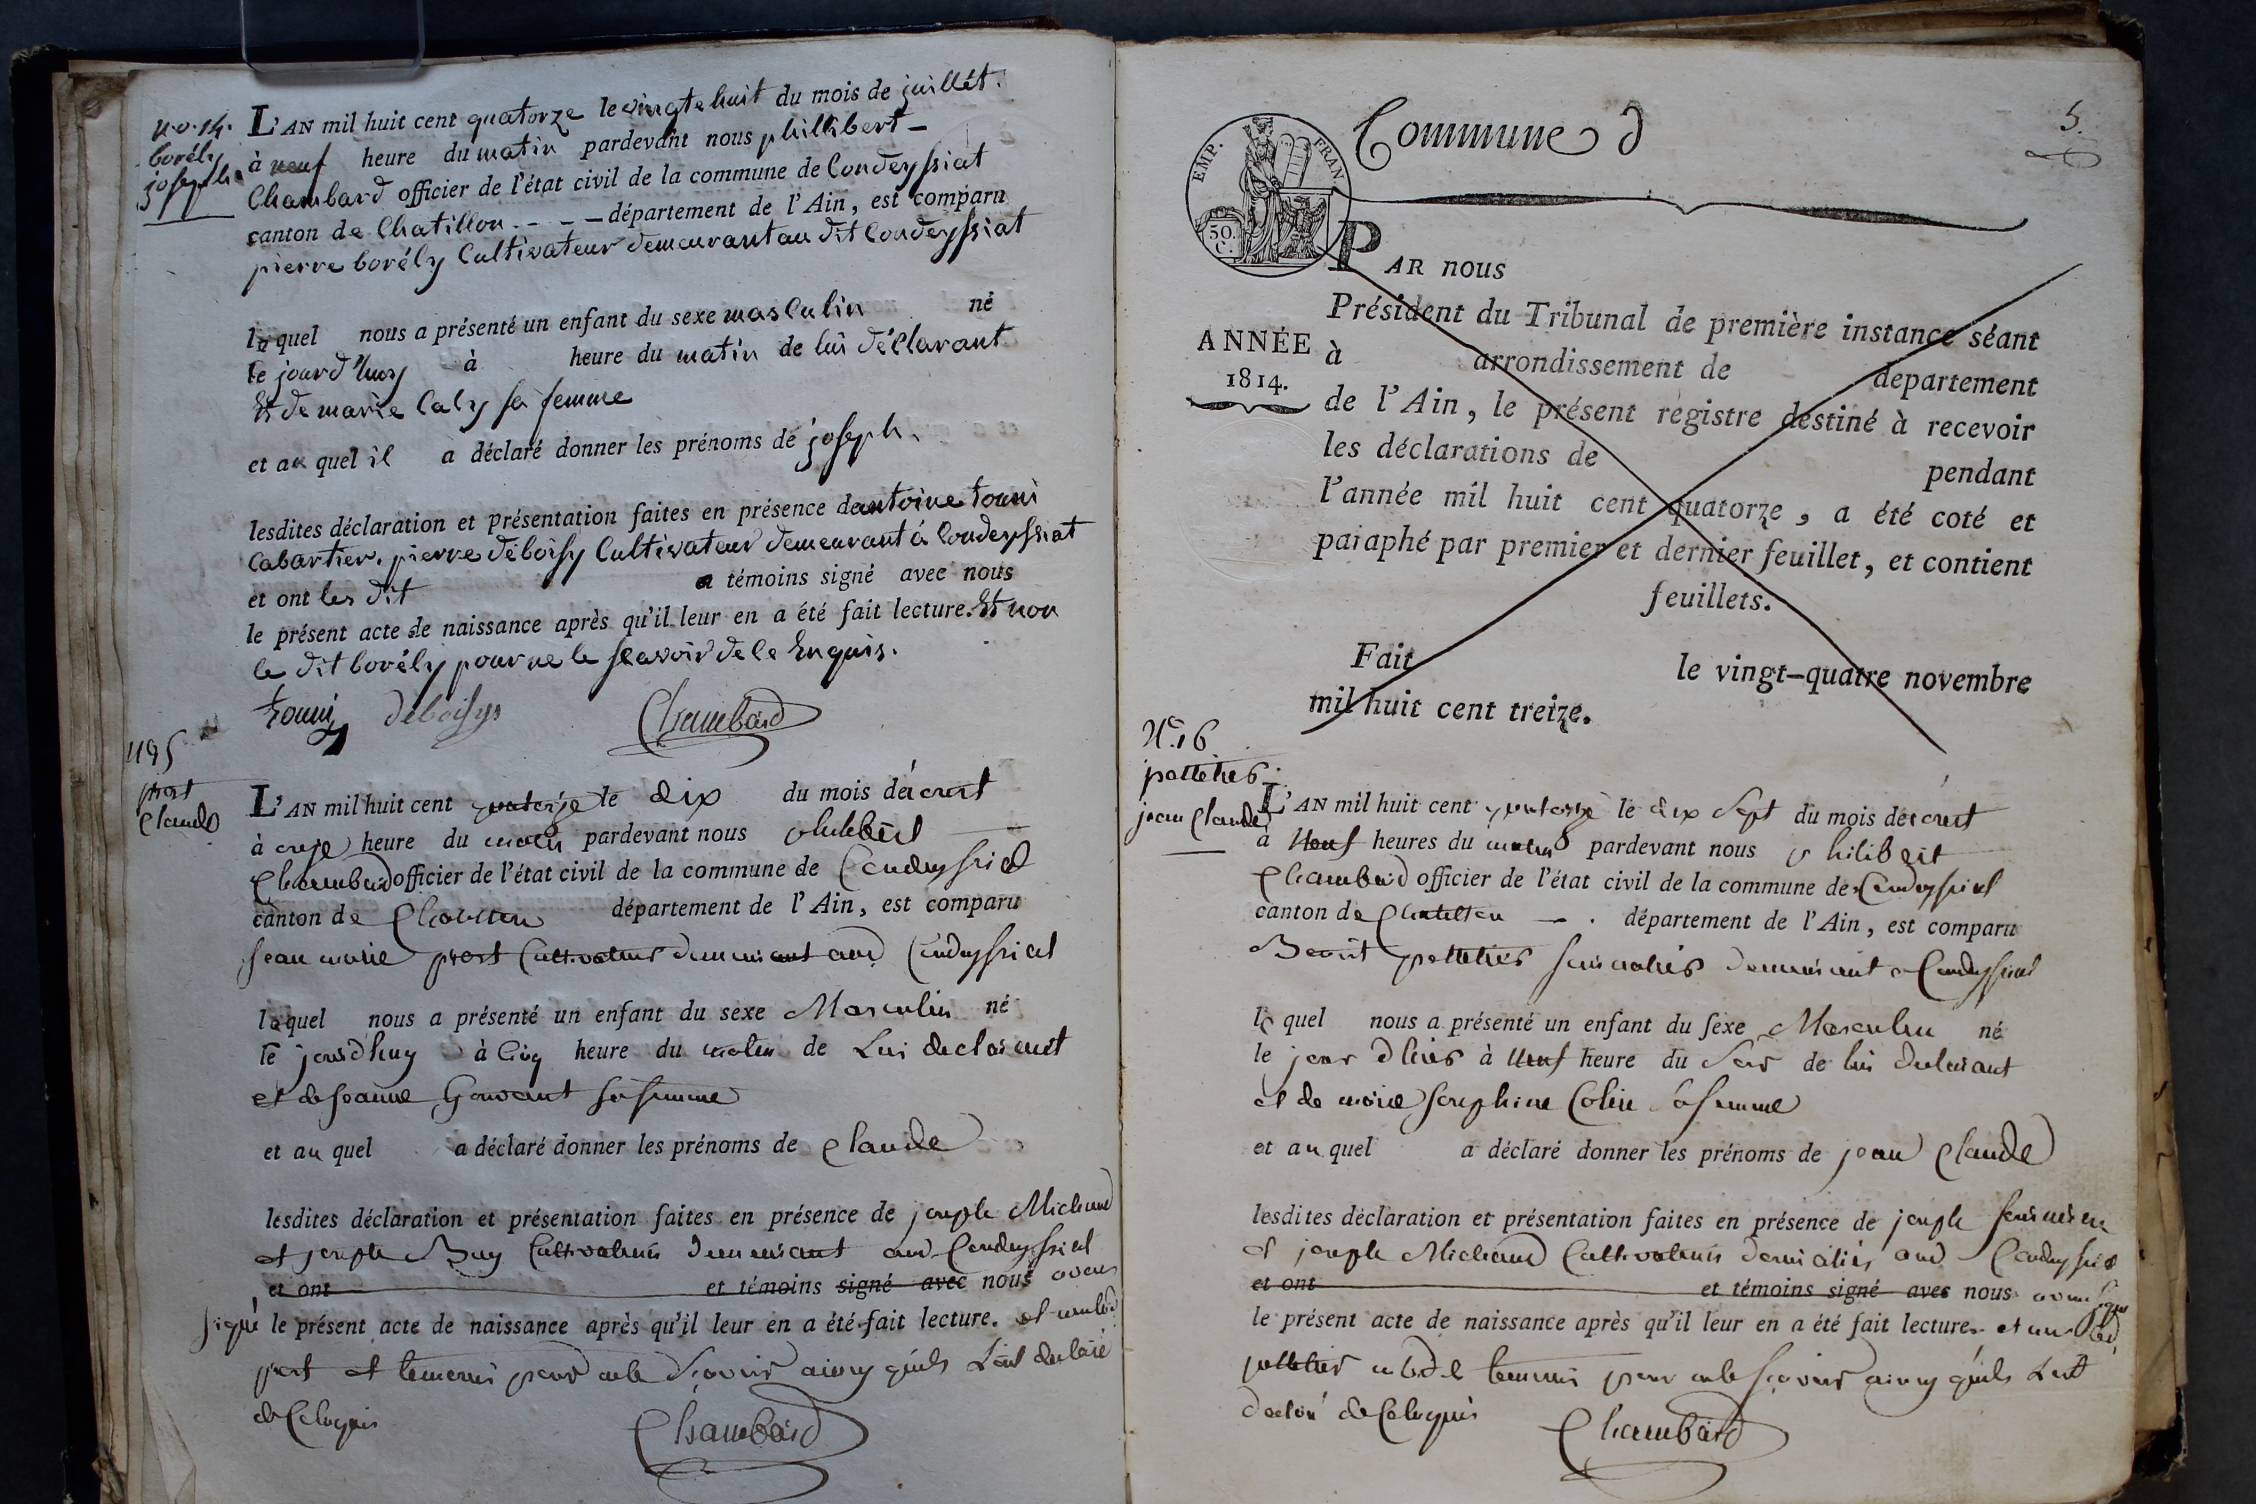 n.o. 14.
borély
joseph
L'AN mil huit cent quatorze le vingte huit du mois de juillét.
à neuf heure du matin pardevant nous phillibert –
Chambard officier de l'état civil de la commune de Condeyssiat
canton de Chatillon - - - – département de l'Ain, est comparu
pierre borély Cultivateur demeurant au dit Condeyssiat
lequel nous a présenté un enfant du sexe masculin né
le jourd'huy à heure du matin de lui déclarant
Et de marie Caly sa femme
et au quel il a déclaré donner les prénoms de joseph.
lesdites déclaration et présentation faites en présence de antoine
Cabartier. pierre déboisy Cultivateur demeurant à Condeyssiat
et ont les dit témoins signé avec nous
le présent acte de naissance après qu'il leur en a été fait lecture. Et non
le dit borély pour ne le scavoir de ce Enquis.
déboisys Chambard
prost
Claude
L'AN mil huit cent quatorze le dix du mois d'aoust
à onze heure du matin pardevant nous philibert
Chambard officier de l'état civil de la commune de Condeyssiat
canton de Chatillon département de l'Ain, est comparu
jean marie prost Cultivateur demeurant aud Condeyssiat
lequel nous a présenté un enfant du sexe Masculin né
le jourdhuy à Cinq heure du matin de Lui declarant
et de jeanne sa femme
et au quel a déclaré donner les prénoms de Claude
lesdites déclaration et présentation faites en présence de joseph Michaud
et joseph Buy Cultivateurs demeurant aud Condeyssiat
et ont et témoins signé avec nous avons
signé le présent acte de naissance après qu'il leur en a été fait lecture. et non led
prost et temoins pour ne le sçavoir ainsy quils Lont declaré
de Ce enquis Chambard
5.
Commune d
EMP. FRAN
50.
C.
ANNÉE
1814.
PAR nous
Président du Tribunal de première instance séant
à arrondissement de département
de l'Ain, le présent registre destiné à recevoir
les déclarations de pendant
l'année mil huit cent quatorze, a été coté et
paraphé par premier et dernier feuillet, et contient
feuillets.
Fait le vingt-quatre novembre
mil huit cent treize.
N.° 16
pelletier
jean Claude
L'AN mil huit cent quatorze le dix Sept du mois d'aoust
à Neuf heures du matin pardevant nous philibert
Chambard officier de l'état civil de la commune de Condeyssiat
canton de Chatillon – . département de l'Ain, est comparu
Benoit pelletier demeurant a Condeyssiat
le quel nous a présenté un enfant du sexe Masculin né
le jour dhier à Neuf heure du Soir de lui declarant
et de marie josephine Colin sa femme
et au quel a déclaré donner les prénoms de jean Claude
lesdites déclaration et présentation faites en présence de joseph
et joseph Michaud Cultivateurs domiciliés aud Condeyssiat
et ont et témoins signé avec nous avons signé
le présent acte de naissance après qu'il leur en a été fait lecture. et non led
pelletier temoins pour ne le sçavoir ainsy quils Lont
declaré de Ce enquis Chambard